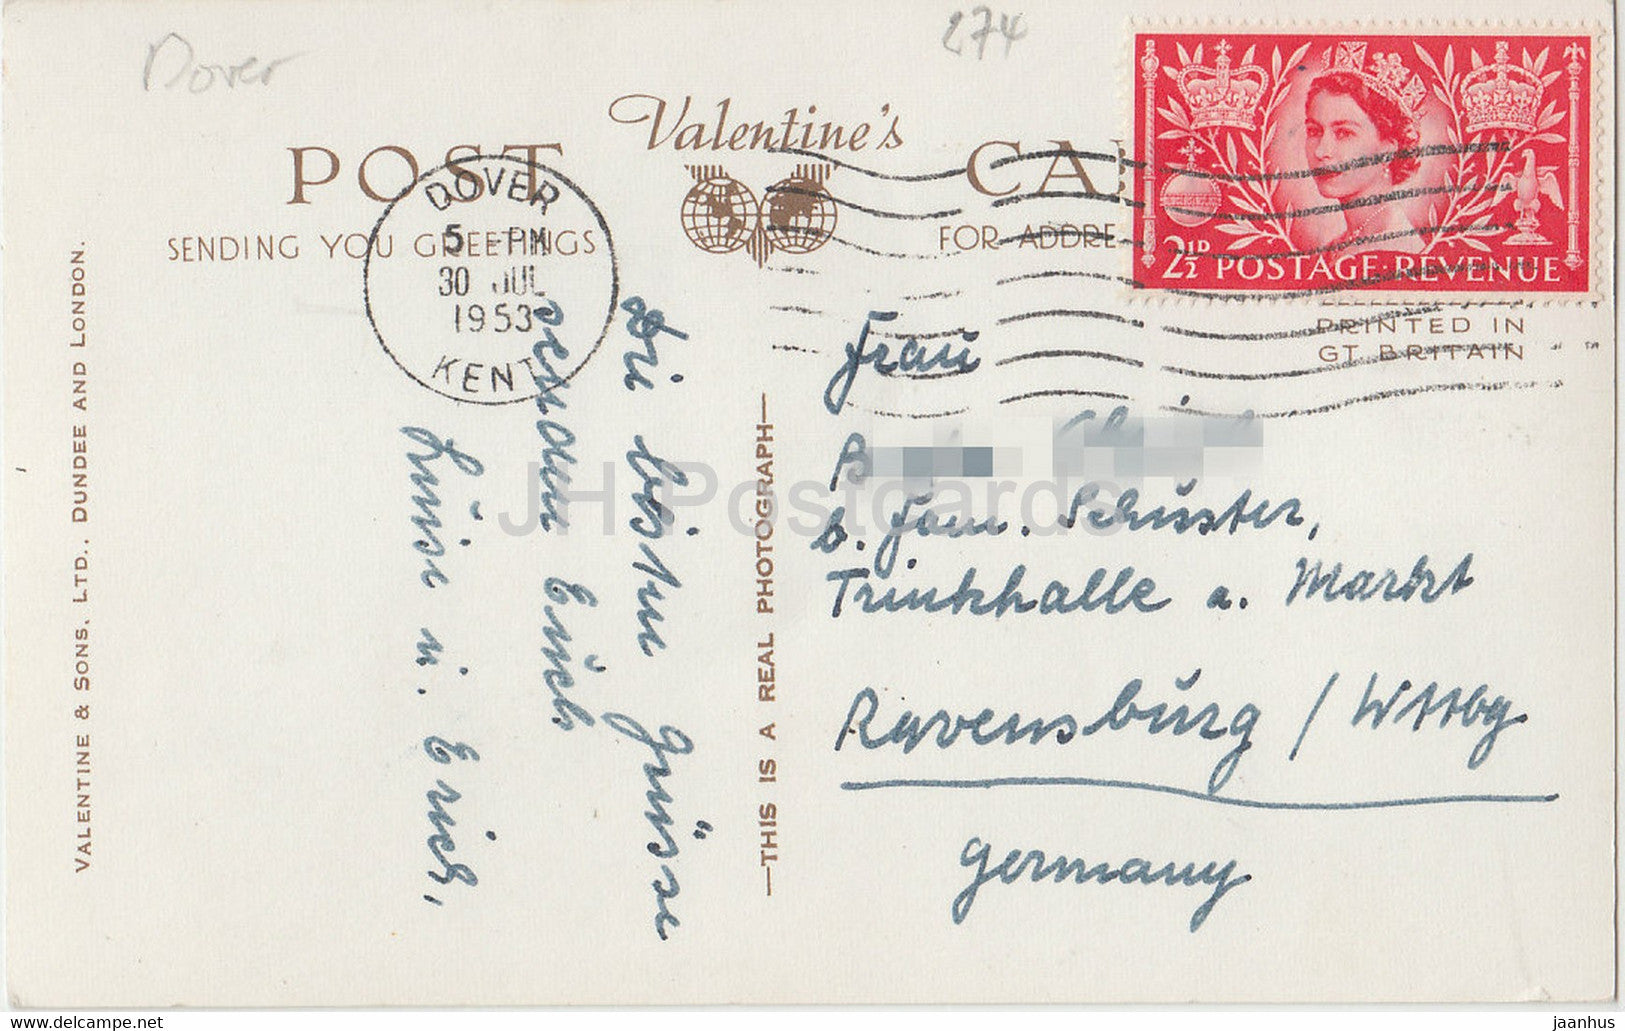 Dover
274
POST
Valentine's
SENDING YOU GREETINGS
FOR ADDRE
DOVER
5 - PM
30 JUL
1953
KENT
2½D POSTAGE·REVENUE
PRINTED IN
GT BRITAIN
VALENTINE & SONS, LTD., DUNDEE AND LONDON.
—THIS IS A REAL PHOTOGRAPH—
besten Grüsse
senden Euch
Luise u. Erich,
Frau
b. Fam. Schuster,
Trinkhalle a. Markt
Ravensburg / Wttbg
Germany
JH Postcards
jaanhus
www.delcampe.net